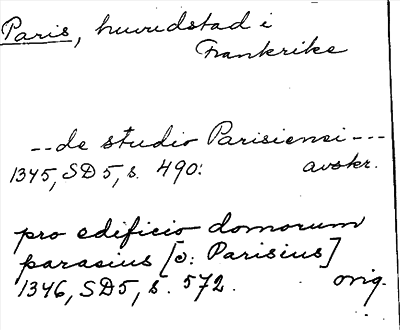 Paris, huvudstad i
Frankrike
--de studio Parisiensi---
1345, SD 5, s. 490. avskr.
pro edificio domorum
parasius [ɔ: Parisius]
1346, SD5, s. 572. orig.